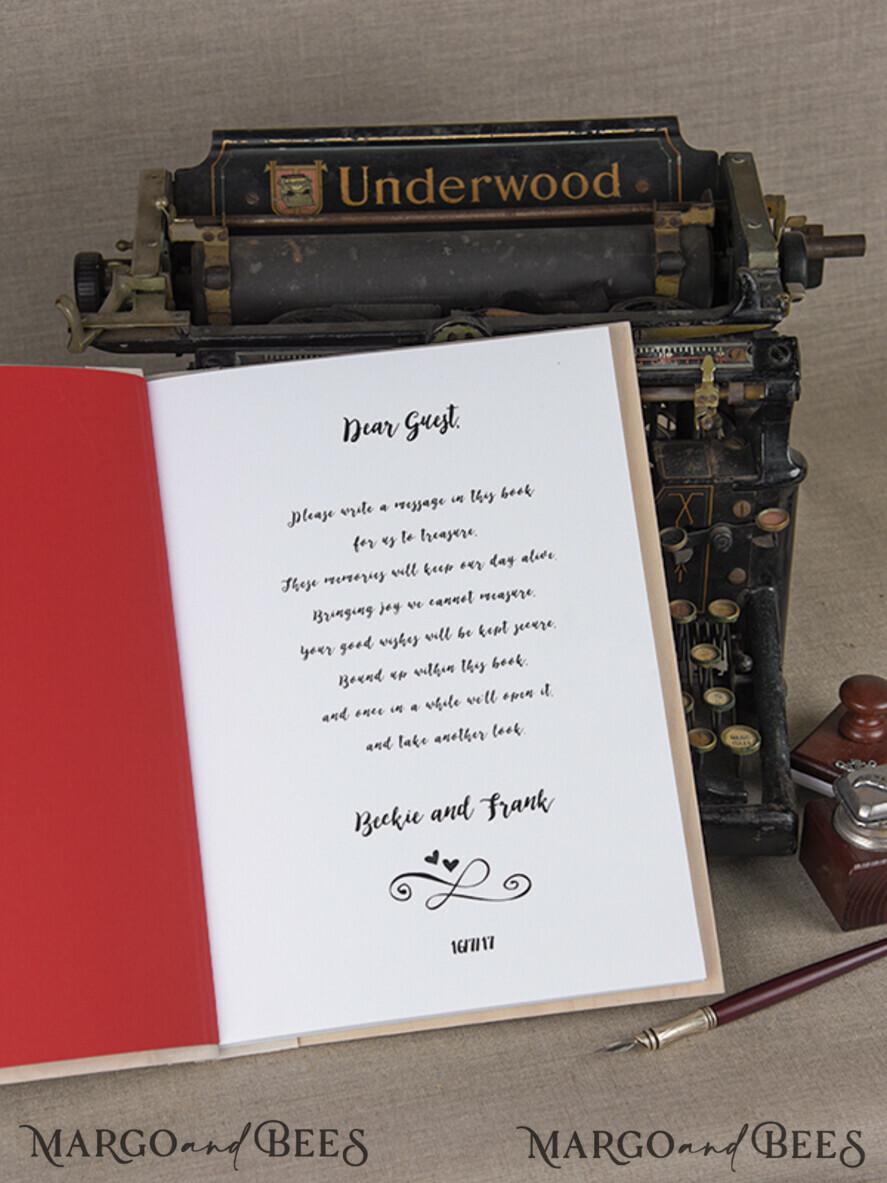 Underwood
Dear Guest,
Please write a message in this book
for us to treasure.
These memories will keep our day alive.
Bringing joy we cannot measure.
Your good wishes will be kept secure.
Bound up within this book.
and once in a while we'll open it.
and take another look.
Beckie and Frank
16/7/17
MARGO and BEES
MARGO and BEES